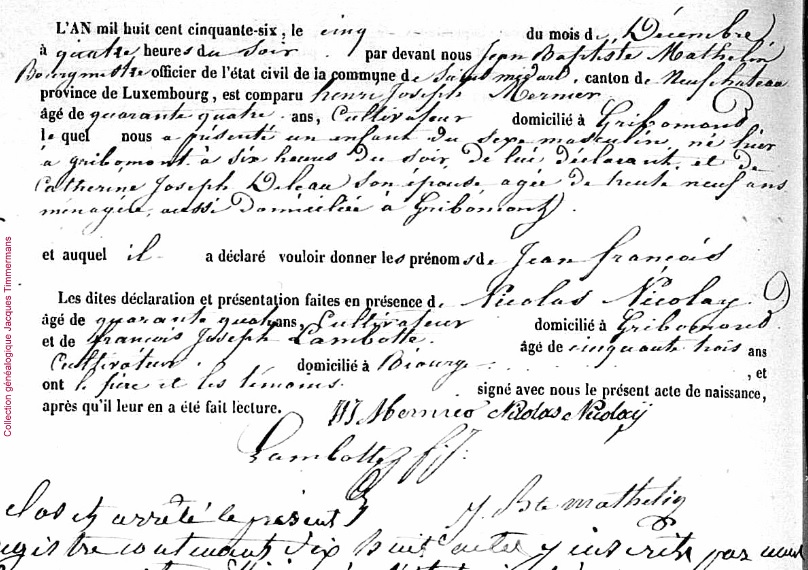 L'AN mil huit cent cinquante-six, le cinq du mois de Décembre
à quatre heures du soir par devant nous Jean Baptiste Mathelin
Bourgmestre officier de l'état civil de la commune de Saint médard, canton de Neufchateau
province de Luxembourg, est comparu henri Joseph Mernier
âgé de quarante quatre ans, Cultivateur domicilié à Gribomont
le quel nous a présenté un enfant du sexe masculin, né hier
à gribomont à six heures du soir de lui déclarant et de
Catherine Joseph Deleau son épouse, agée de trente neuf ans
ménagère, aussi domiciliée à Gribomont.
et auquel il a déclaré vouloir donner les prénoms de Jean françois
Les dites déclaration et présentation faites en présence de Nicolas Nicolay
âgé de quarante quatre ans, Cultivateur domicilié à Gribomont
et de françois Joseph Lambotte âgé de cinquante trois ans
Cultivateur domicilié à Biourge, et
ont le père et les témoins signé avec nous le présent acte de naissance,
après qu'il leur en a été fait lecture. Mernier Nicolas Nicolaÿ
Lambotte
J Bte mathelin
Clos et arrêté le présent
registre contenant dix huit actes y inscrits par nous
Collection généalogique Jacques Timmermans